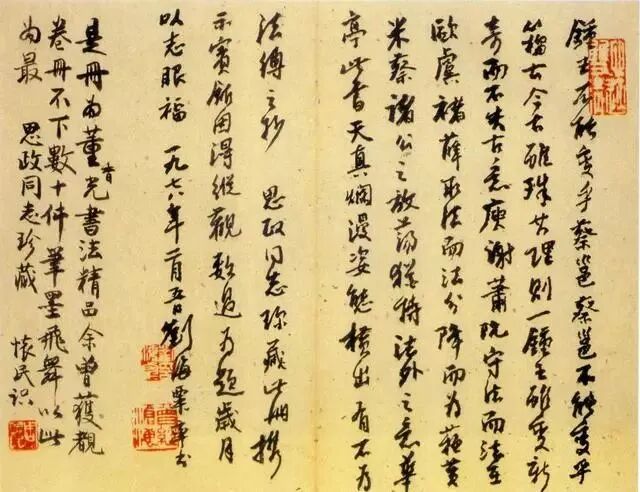 鍾王不能變乎蔡邕蔡邕不能變乎
籀古今古雖殊其理則一鍾王雖變新
奇而不失古意庾謝蕭阮守法而法在
歐虞褚薛取法而法分降而為蘇黃
米蔡諸公之放蕩猶持法外之意華
亭此書天真爛漫姿態橫出有不為
法縛之妙 思政同志珍藏此冊攜
示賓館因得縱觀數過為題歲月
以志眼福 一九七八年二月五日劉海粟
是冊為董香光書法精品余曾獲觀
卷冊不下數十件筆墨飛舞以此
為最 思政同志珍藏 懷民識